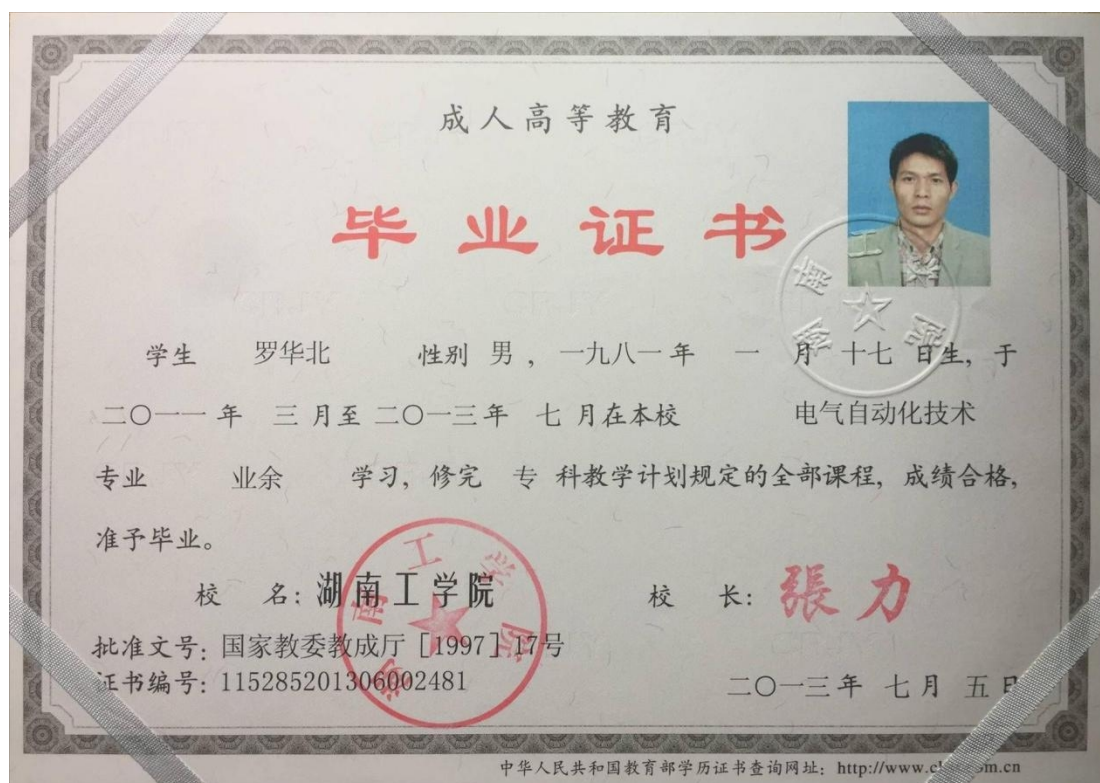 成人高等教育
毕业证书
学生 罗华北 性别 男 ，一九八一年 一 月 十七 日生，于
二〇一一 年 三 月至 二〇一三年 七 月在本校 电气自动化技术
专业 业余 学习，修完 专 科教学计划规定的全部课程，成绩合格，
准予毕业。
校 名：湖南工学院 校 长：張力
批准文号：国家教委教成厅［1997］17号
证书编号：115285201306002481
二〇一三年 七月 五日
中华人民共和国教育部学历证书查询网址：http://www.
湖南工学院
湖南工学院